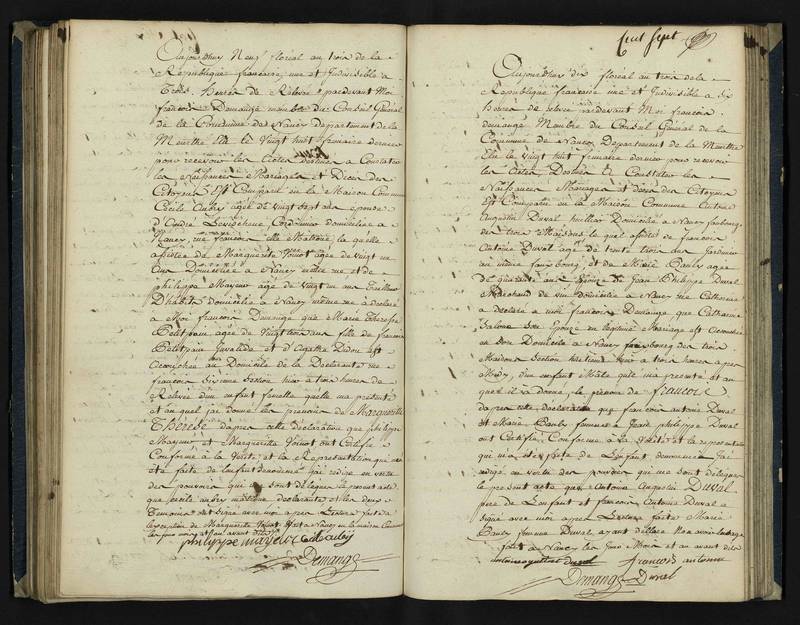 Aujourdhuy Neuf floréal an trois de la
République francaise, une et Indivisible a
Trois heures de Relevée pardevant Moi
francois Demange membre du Conseil Général
de la Commune de Nancy departement de la
Meurthe Elu le Vingt huit frimaire dernier
pour recevoir les Actes destinés a Constater
les Naissances Mariages et Décès des
Citoyens Est Comparu en la Maison Commune
Cécile agée de vingt sept ans épouse
Cordonnier domiciliée a
Nancy rue la quelle
assistée de Marguerite Voinot agée de vingt un
ans Domiciliée a Nancy même rue et de
philippe Mayeur agé de vingt un ans Tailleur
D'habits domicilié a Nancy même rue a déclaré
a Moi francois Demange que Marie Therese
Petitpain agée de Vingt trois ans fille de francois
Petitpain Invalide et d'Agathe Didou est
accouchée au Domicile de la Déclarante rue
francois Sixieme Section hier a trois heures de
Relevée d'un enfant femelle quelle ma présenté
et auquel jai donné les prenoms de Marguerite
Thérèse daprès cette déclaration que philippe
Mayeur et Marguerite Voinot ont Certifié
Conforme a la Verité et la Représentation qui ma
été faite de l'enfant denommé j'ai redigé en vertu
des pouvoirs qui me sont délégués le present acte
que cecile declarante et les deux
Temoins ont Signé avec moi apres Lecture faite a
lexception de Marguerite Voinot fait a Nancy en la maison Commune
les jour mois et an avant dits
philippe mayeur
Demange
Cent Sept
Aujourdhuy dix floréal an trois de la
République francaise une et Indivisible a Six
heures de relevée pardevant Moi francois
demange Membre du Conseil Général de la
Commune de Nancy Departement de la Meurthe
Elu le vingt huit frimaire dernier pour recevoir
les Actes Destinés a Constater les
Naissances Mariages et décès des Citoyens
Est Comparu en la Maison Commune Antoine
Augustin Duval Domicilié a Nancy faubourg
des trois Maisons le quel assisté de francois
Antoine Duval agé de trente trois ans Jardinier
au même faubourg et de Marie Bauly agée
de quarante ans Epouse de Jean Philippe Duval
Marchand de vin Domiciliée a Nancy rue Catherine
a déclaré a moi francois Demange que Catherine
son Epouse en légitime Mariage est accouchée
en son Domicile a Nancy faubourg des trois
Maisons Section huitieme hier a trois heures apres
Midy, d'un enfant Mâle qu'il ma presenté et au
quel il a donné le prénom de francois
dapres cette déclaration que francois antoine Duval
et Marie Bauly femme a Jean philippe Duval
ont Certifié Conforme a la Vérité et la représentation
qui ma été faite de l'enfant denommé J'ai
redigé en vertu des pouvoirs qui me sont délégués
le present acte que Antoine Augustin Duval
pere de l'enfant et francois Antoine Duval a
Signé avec moi apres Lecture faite Marie
Bauly femme Duval ayant déclaré
fait a Nancy les Jour Mois et an avant dits
antoine augustin duval francois antoine
Demange Duval